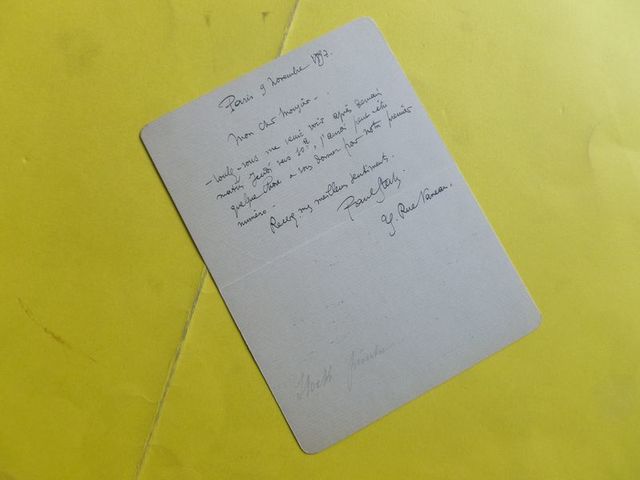 Paris 9 novembre 1897.
Mon cher
-voulez-vous me venir voir après demain
matin Jeudi vers 10h, j'aurai peut-être
quelque chose à vous donner pour notre premier
numéro.
Recev. mes meilleurs sentiments.
Paul
Rue Vaneau.